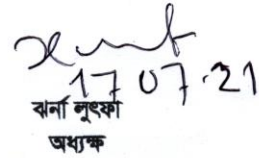 17.07.21
ঝর্না লুৎফা
অধ্যক্ষ